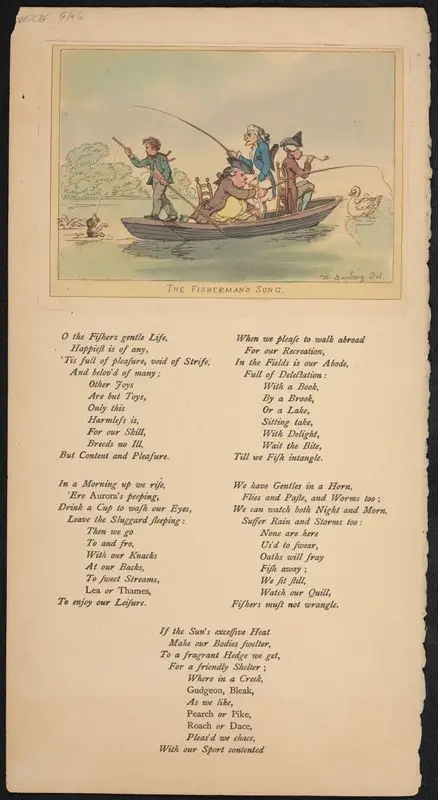 Bunbury Del.
THE FISHERMAN'S SONG.
O the Fiſhers gentle Life,
Happieſt is of any,
'Tis full of pleaſure, void of Strife,
And belov'd of many;
Other Joys
Are but Toys,
Only this
Harmleſs is,
For our Skill,
Breeds no Ill,
But Content and Pleaſure.
In a Morning up we riſe,
'Ere Aurora's peeping,
Drink a Cup to waſh our Eyes,
Leave the Sluggard ſleeping:
Then we go
To and fro,
With our Knacks
At our Backs,
To ſweet Streams,
Lea or Thames,
To enjoy our Leiſure.
When we pleaſe to walk abroad
For our Recreation,
In the Fields is our Abode,
Full of Delectation:
With a Book,
By a Brook,
Or a Lake,
Sitting take,
With Delight,
Wait the Bite,
Till we Fiſh intangle.
We have Gentles in a Horn,
Flies and Paſte, and Worms too;
We can watch both Night and Morn,
Suffer Rain and Storms too:
None are here
Us'd to ſwear,
Oaths will fray
Fiſh away;
We ſit ſtill,
Watch our Quill,
Fiſhers muſt not wrangle.
If the Sun's exceſſive Heat
Make our Bodies ſwelter,
To a fragrant Hedge we get,
For a friendly Shelter;
Where in a Creek,
Gudgeon, Bleak,
As we like,
Pearch or Pike,
Roach or Dace,
Pleas'd we chace,
With our Sport contented